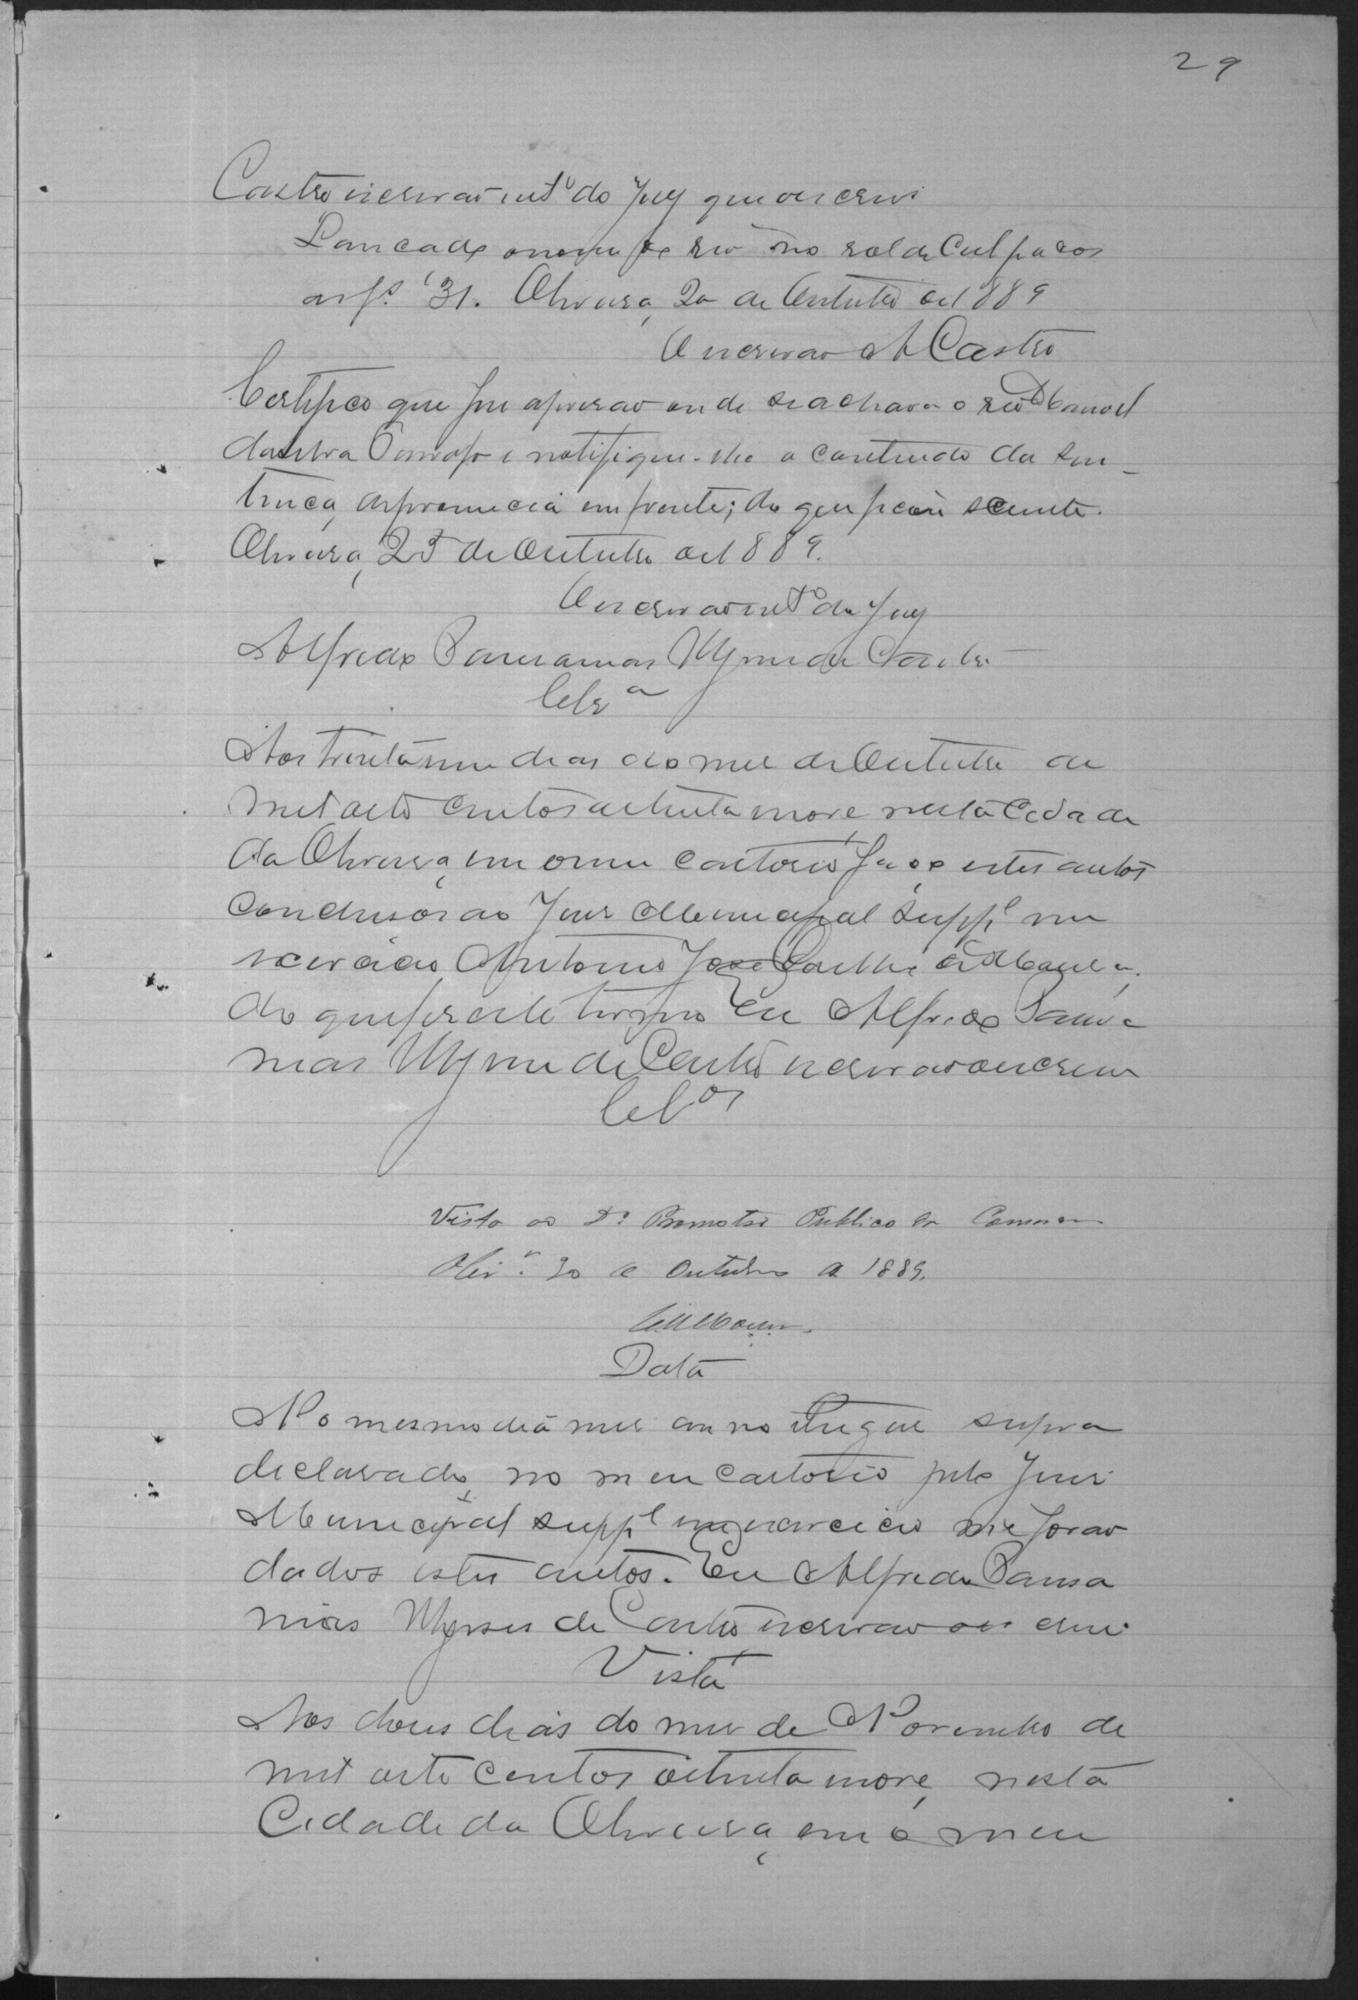 29
Castro escrivão int.º do Jury que o escrevi
Lançado o nome do reo no rol de Culpados
as fs. 31. Oliveira, 20 de Outubro de 1889
O escrivão A Castro
Certifico que fui a prisão onde se achava o reo Manoel
da Silva e notifiquei-lhe o conteudo da sen-
tença de pronuncia em frente; do que ficou sciente.
Oliveira, 25 de Outubro de 1889.
O escrivão int.º do Jury
Alfredo Pausanias Ulysses de Castro
Cls.ª
Aos trinta um dias do mez de Outubro de
mil oito centos oitenta e nove, nesta Cidade
da Oliveira, em o meu cartorio faço estes autos
conclusos ao Juiz Municipal Supp.l em
exercicio Antonio José Coelho de Moura,
do que fiz este termo Eu Alfredo Pausa
nias Ulysses de Castro escrivão o escrevi
Cl.os
Vista ao Dr. Promotor Publico da Comarca
Oliv.ª 30 de Outubro de 1889.
C. Moura.
Data
No mesmo dia mez anno lugar supra
declarado, no meu cartorio pelo Juiz
Municipal supp.l em exercicio me forão
dados estes autos. Eu Alfredo Pausa
nias Ulysses de Castro escrivão o escrevi
Vista
Aos dous dias do mez de Novembro de
mil oito centos oitenta e nove, nesta
Cidade da Oliveira, em o meu